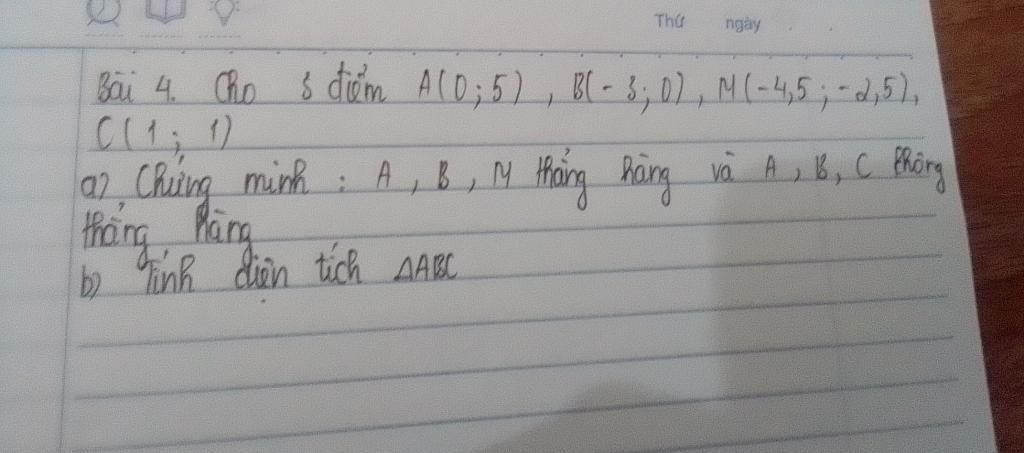 Thứ ngày
Bài 4. Cho 3 điểm A(0;5), B(-3;0), M(-4,5;-2,5),
C(1; 1)
a) Chứng minh: A, B, M thẳng hàng và A, B, C không
thẳng hàng
b) Tính diện tích ΔABC